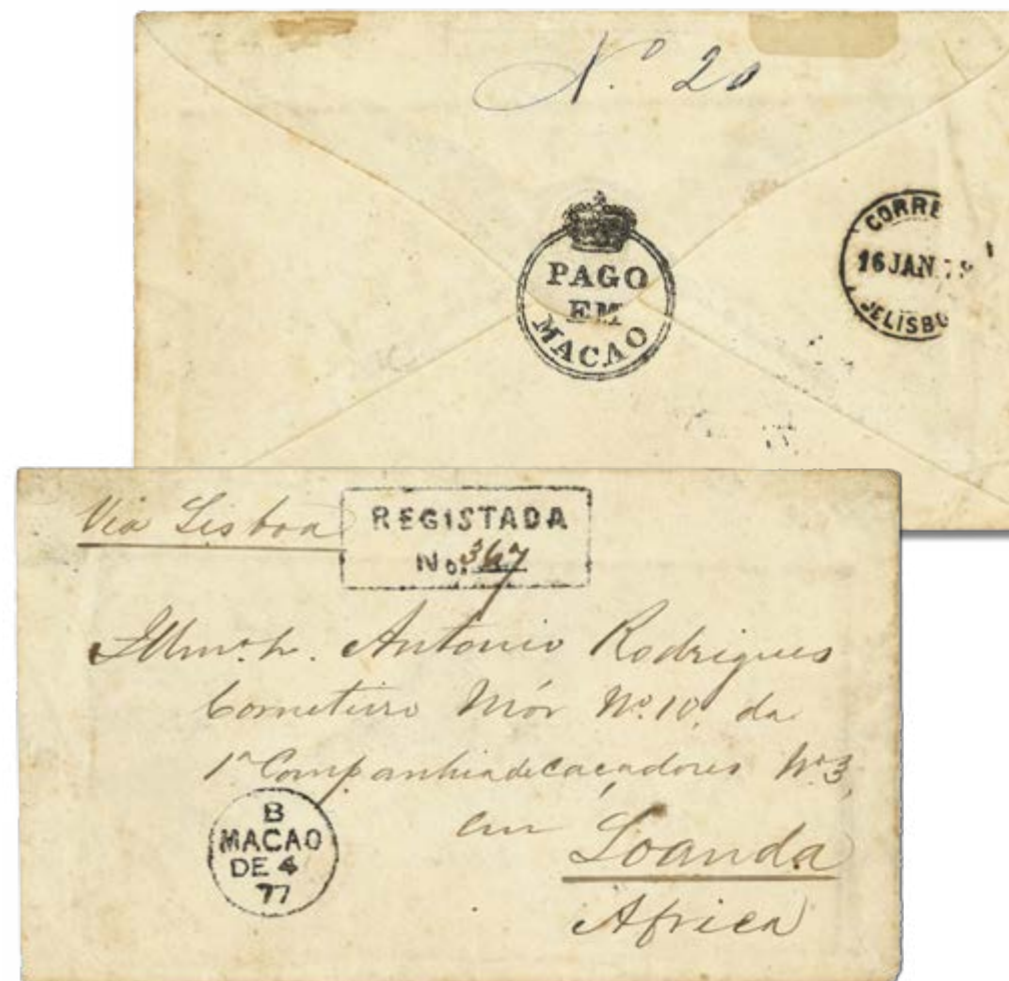 N.º 20
PAGO
EM
MACAO
CORRE
16 JAN 7
DELISBO
Via Lisboa
REGISTADA
No. 367
Illmo. Sr. Antonio Rodrigues
Corneteiro Mór Nº 10, da
1ª Companhia de Caçadores Nº 3,
em Loanda
Africa
B
MACAO
DE 4
77